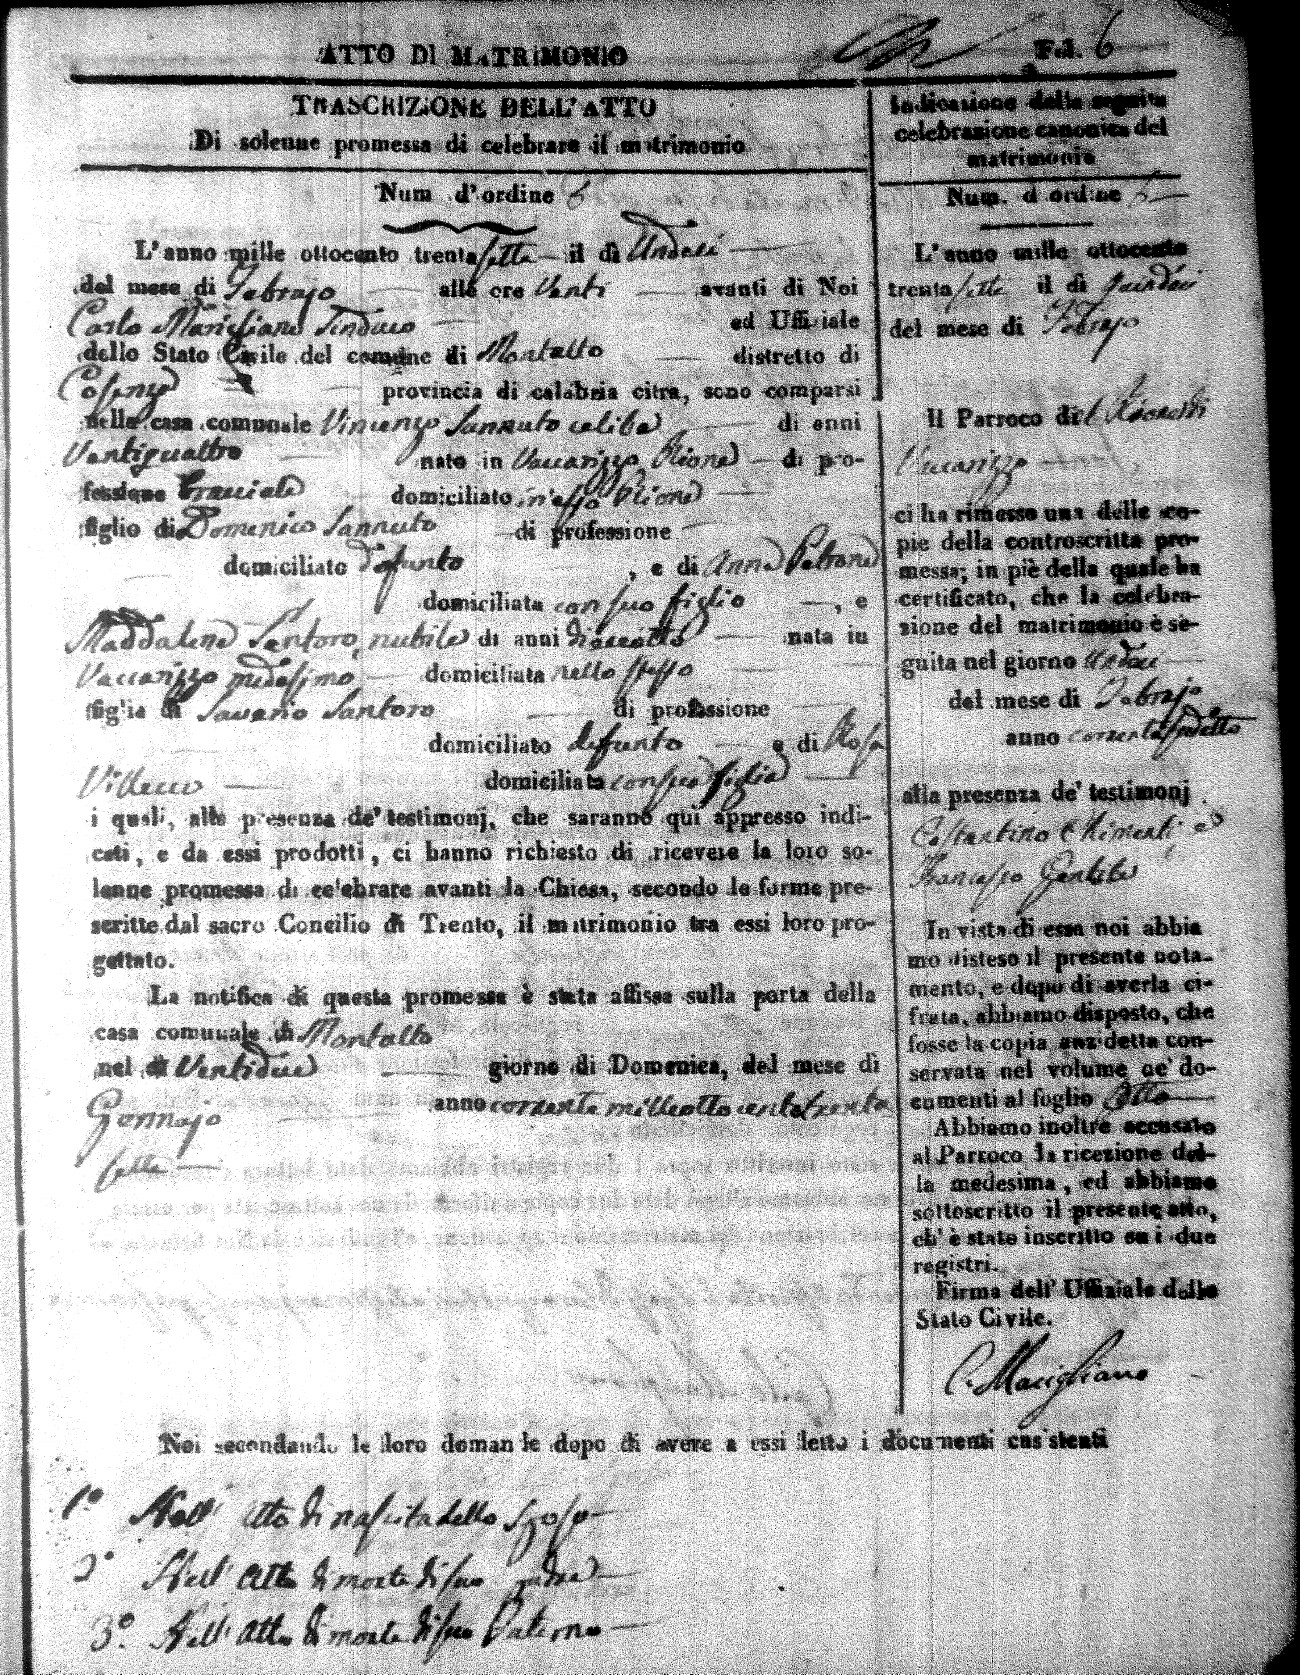 ATTO DI MATRIMONIO
Fol. 6
TRASCRIZIONE DELL'ATTO
Di solenne promessa di celebrare il matrimonio
Num. d'ordine 6
L'anno mille ottocento trentasette il dì Undeci
del mese di Febrajo alle ore Venti avanti di Noi
Carlo Marigliano Sindaco ed Uffiziale
dello Stato Civile del comune di Montalto distretto di
Cosenza provincia di calabria citra, sono comparsi
nella casa comunale Vincenzo Sannuto celibe di anni
Ventiquattro nato in Vaccarizzo Rione di pro-
fessione Bracciale domiciliato in esso Rione
figlio di Domenico Sannuto di professione
domiciliato defunto, e di Anna
domiciliata con suo figlio, e
Maddalena Santoro, nubile di anni nata in
Vaccarizzo medesimo domiciliata nello stesso
figlia di Saverio Santoro di professione
domiciliato defunto e di Rosa
Villecco domiciliata con sua figlia
i quali, alla presenza de' testimonj, che saranno qui appresso indi-
cati, e da essi prodotti, ci hanno richiesto di ricevere la loro so-
lenne promessa di celebrare avanti la Chiesa, secondo le forme pre-
scritte dal sacro Concilio di Trento, il matrimonio tra essi loro pro-
gettato.
La notifica di questa promessa è stata affissa sulla porta della
casa comunale di Montalto
nel dì Ventidue giorno di Domenica, del mese di
Gennajo anno corrente milleottocentotrenta
sette
Indicazione della seguita
celebrazione canonica del
matrimonio
Num. d'ordine 6
L'anno mille ottocento
trentasette il dì Quindeci
del mese di Febrajo
Il Parroco di
Vaccarizzo
ci ha rimesso una delle co-
pie della controscritta pro-
messa; in piè della quale ha
certificato, che la celebra-
zione del matrimonio è se-
guita nel giorno
del mese di Febrajo
anno corrente sudetto
alla presenza de' testimonj
Costantino Chimenti ed
Francesco Gentile
In vista di essa noi abbia
mo disteso il presente nota-
mento, e dopo di averla ci-
frata, abbiamo disposto, che
fosse la copia anzidetta con-
servata nel volume de' do-
cumenti al foglio Otto
Abbiamo inoltre accusato
al Parroco la ricezione del-
la medesima, ed abbiamo
sottoscritto il presente atto,
ch'è stato inscritto su i due
registri.
Firma dell' Uffiziale dello
Stato Civile.
C. Marigliano
Noi secondando le loro domande dopo di avere a essi letto i documenti consistenti
1º Nell' atto di nascita dello sposo
2º Nell' atto di morte di suo padre
3º Nell' atto di morte di suo Paterno